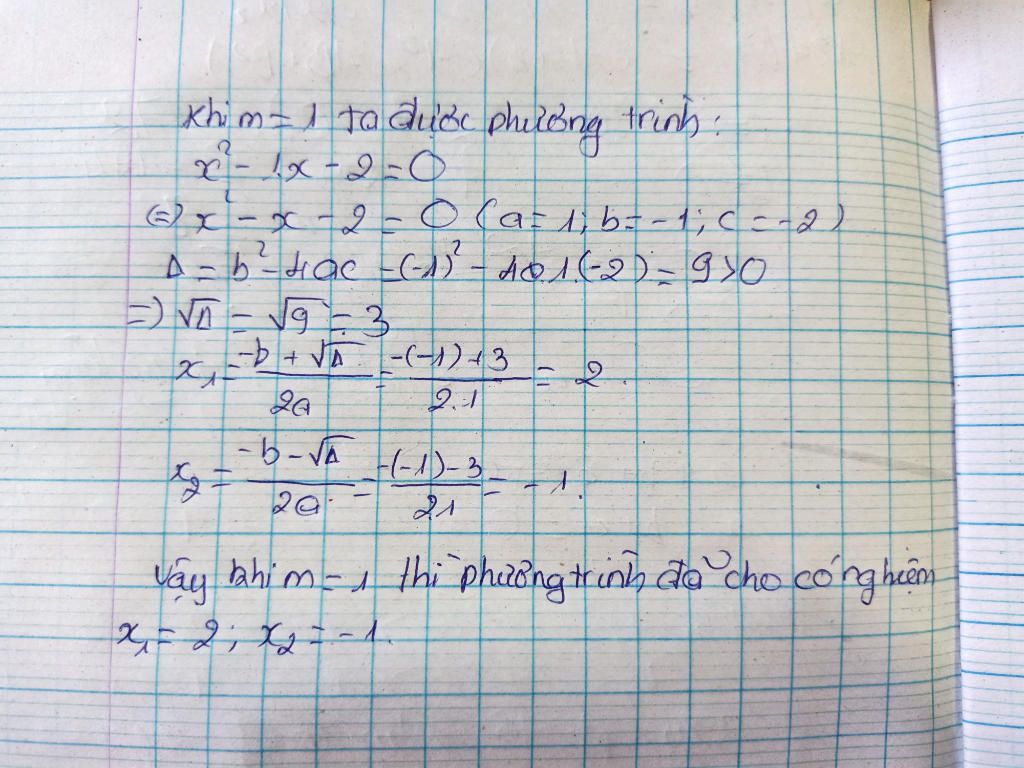 Khi m = 1 ta được phương trình:
x² - 1.x - 2 = 0
(=) x² - x - 2 = 0 (a = 1; b = -1; c = -2)
Δ = b² - 4ac = (-1)² - 4.1.(-2) = 9 > 0
=) √Δ = √9 = 3
x₁ = (-b + √Δ)/(2a) = (-(-1) + 3)/(2.1) = 2.
x₂ = (-b - √Δ)/(2a) = (-(-1) - 3)/(2.1) = -1.
Vậy khi m = 1 thì phương trình đã cho có nghiệm
x₁ = 2; x₂ = -1.